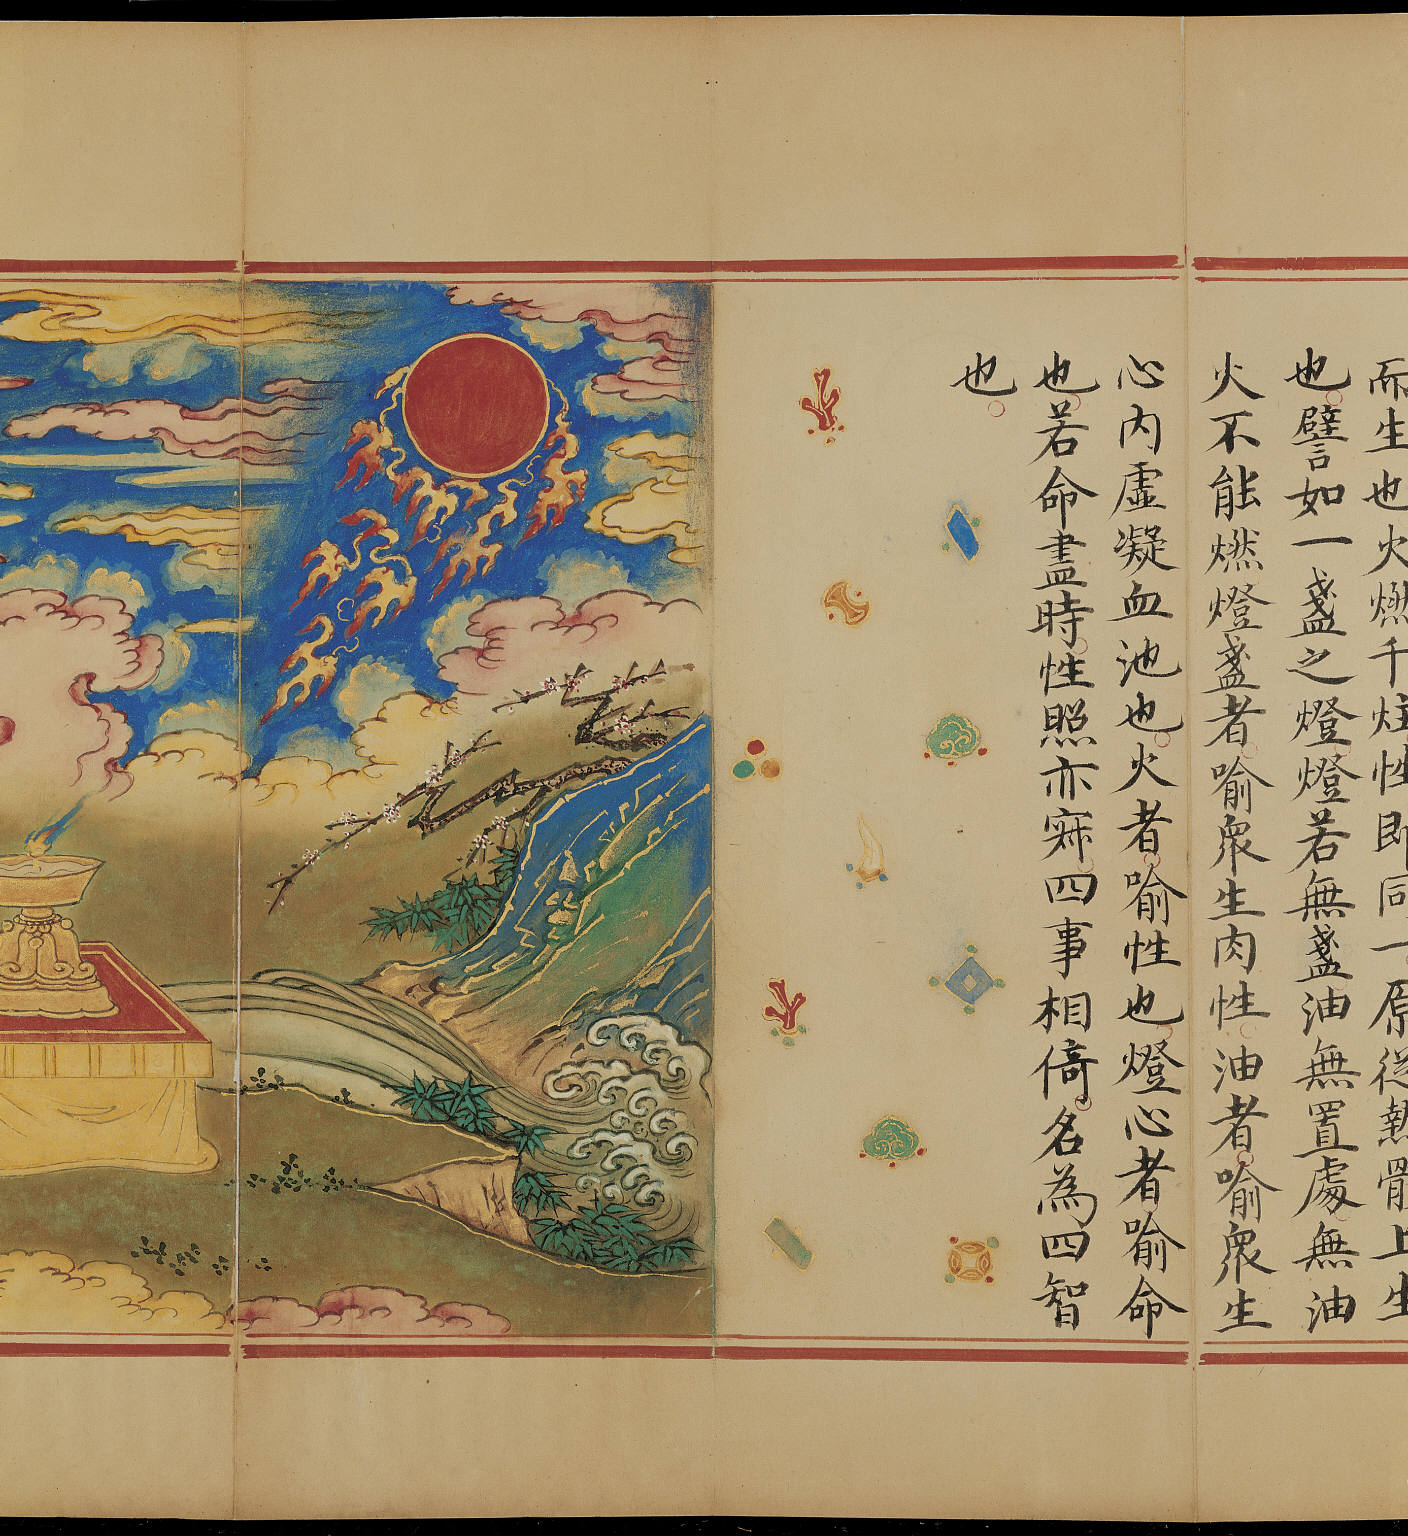 而生也火燃千炷性即同一原從熱體上生
也譬如一盞之燈燈若無盞油無置處無油
火不能燃燈盞者喻衆生肉性油者喻衆生
心內虛凝血池也火者喻性也燈心者喻命
也若命盡時性照亦寂四事相倚名為四智
也